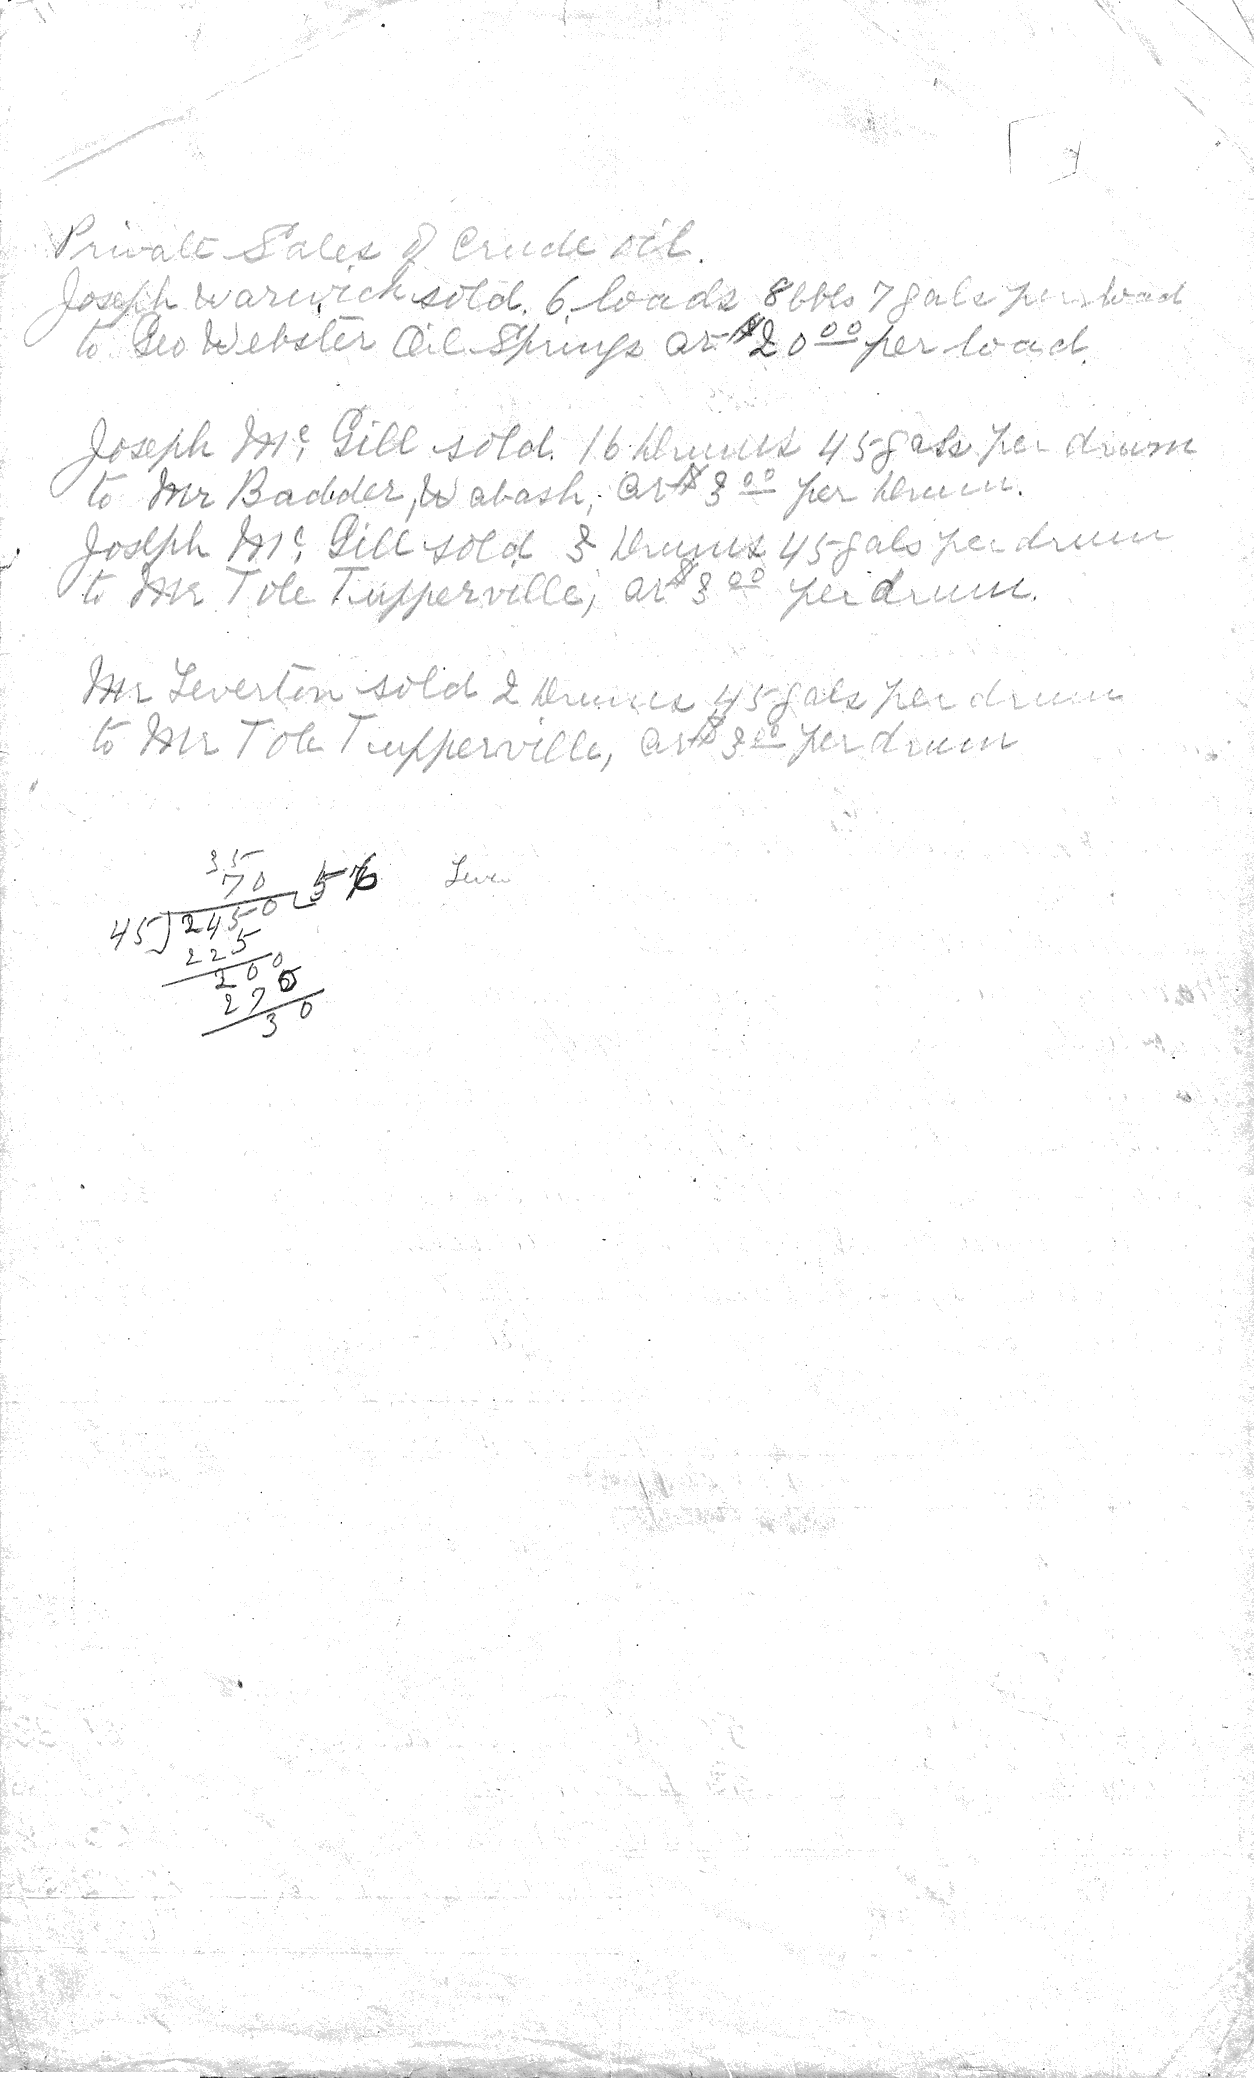 Private Sales of Crude oil.
Joseph Warwick sold. 6 loads 8 bbls 7 gals per load
to Geo Webster Oil Springs at $20 00 per load.
Joseph Mc. Gill sold. 16 Drums 45 gals per drum
to Mr Badder, Wabash, at $3 00 per Drum.
Joseph Mc. Gill sold 3 Drums 45 gals per drum
to Mr Tole Tupperville, at $3 00 per drum.
Mr Leverton sold 2 Drums 45 gals per drum
to Mr Tole Tupperville, at $3 00 per drum
35
70
45)2450 Leve
225
200
270
30